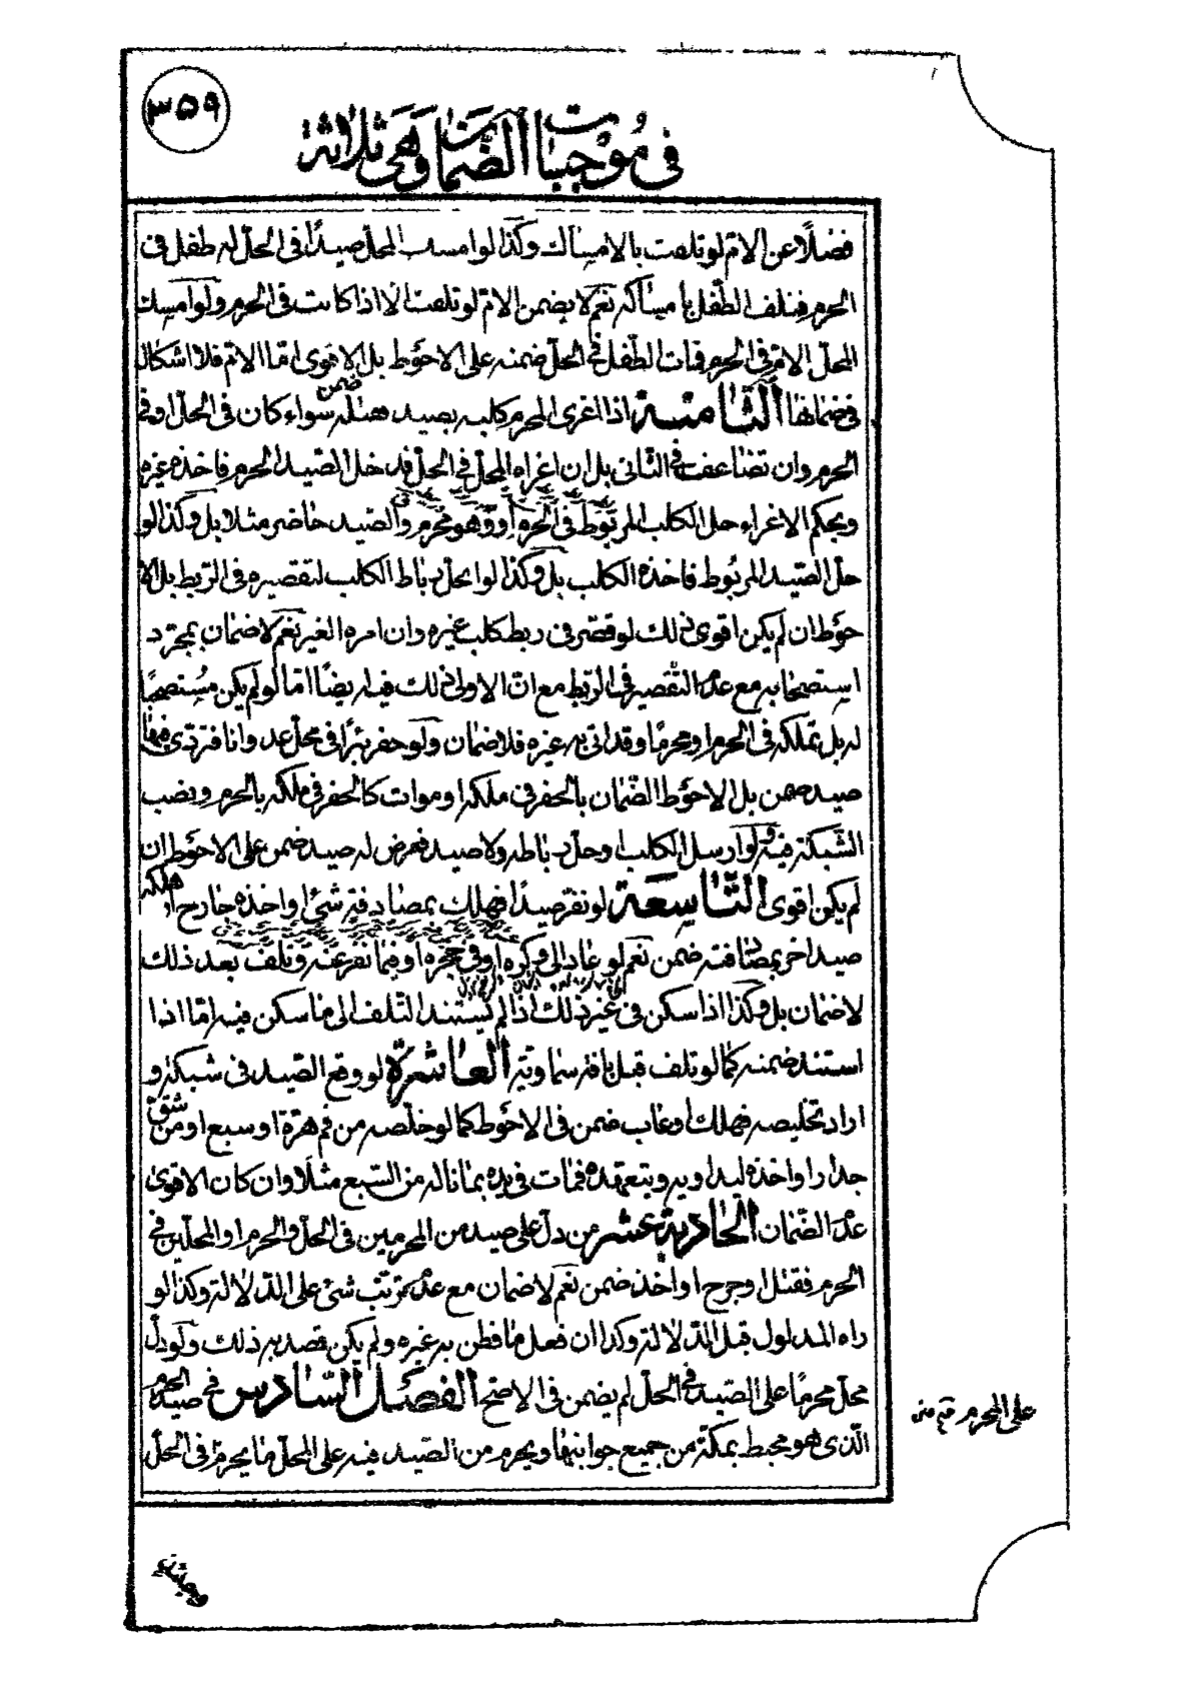 ٣٥٩
في موجبات الضمان وهي ثلاثة
فضلًا عن الام لو تلفت بالامساك وكذا لو امسك المحل صيدًا في الحل له طفل في
الحرم فتلف الطفل بامساكه نعم لا يضمن الام لو تلفت الا اذا كانت في الحرم ولو امسك
المحل الام في الحرم فمات الطفل في الحل ضمنه على الاحوط بل الاقوى اما الام فلا اشكال
في ضمانها الثامنة اذا اغرى المحرم كلبه بصيد فقتله ضمن سواء كان في الحل او في
الحرم وان تضاعف في الثاني بل ان اغراه المحل في الحل فدخل الصيد الحرم فاخذه غيره
وبحكم الاغراء حل الكلب المربوط في الحرم او وهو محرم والصيد حاضر مثلا بل وكذا لو
حل الصيد المربوط فاخذه الكلب بل وكذا لو انحل رباط الكلب لتقصيره في الربط بل الا
حوط ان لم يكن اقوى ذلك لو قصر في ربط كلب غيره وان امره الغير نعم لا ضمان بمجرد
استصحابه مع عدم التقصير في الربط مع ان الاولى ذلك فيه ايضًا اما لو لم يكن مستصحبًا
له بل تملكه في الحرم او محرمًا وقد اتى به غيره فلا ضمان ولو حفر بئرًا في محل عدوانا فتردى فيها
صيد ضمن بل الاحوط الضمان بالحفر في ملكه او موات كالحفر في ملكه بالحرم ونصب
الشبكة فيه ولو ارسل الكلب او حل رباطه ولا صيد فعرض له صيد ضمن على الاحوط ان
لم يكن اقوى التاسعة لو نفر صيدًا فهلك بمصادفة شئ او اخذه جارح او هلكه
صيد اخر بمصادفته ضمن نعم لو عاد الى وكره او في جحره او فيما نفر عنه وتلف بعد ذلك
لا ضمان بل وكذا اذا سكن في غير ذلك اذا لم يستند التلف الى ما سكن فيه اما اذا
استند ضمنه كما لو تلف قبل بافة سماوية العاشرة لو وقع الصيد في شبكة و
اراد تخليصه فهلك او عاب ضمن في الاحوط كما لو خلصه من فم هرة او سبع او من شق
جدار او اخذه ليداويه ويتعهده فمات في يده بما ناله من السبع مثلًا وان كان الاقوى
عدم الضمان الحادية عشر من دل على صيد من المحرمين في الحل والحرم او المحلين في
الحرم فقتل او جرح او اخذ ضمن نعم لا ضمان مع عدم ترتب شئ على الدلالة وكذا لو
راه المدلول قبل الدلالة وكذا ان فعل ما فطن به غيره ولم يكن قصد به ذلك ولو دل
محل محرمًا على الصيد في الحل لم يضمن في الاصح الفصل السادس في صيد الحرم
الذي هو محيط بمكة من جميع جوانبها ويحرم من الصيد فيه على المحل ما يحرم في الحل
على المحرم